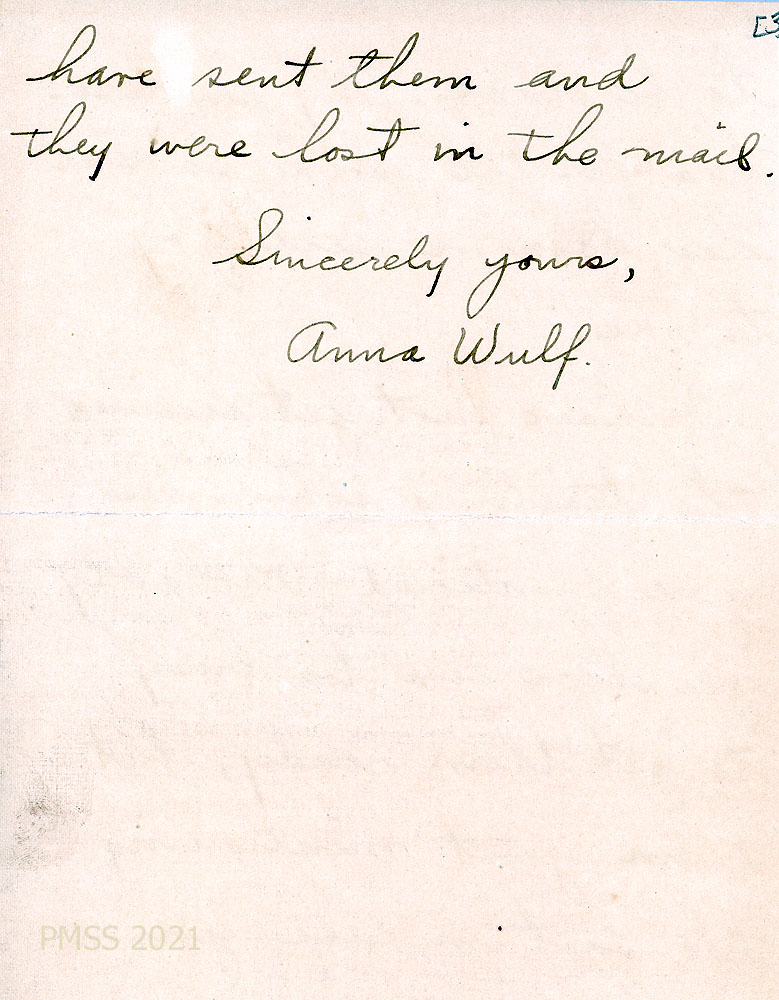 [3
have sent them and
they were lost in the mail.
Sincerely yours,
Anna Wulf.
PMSS 2021